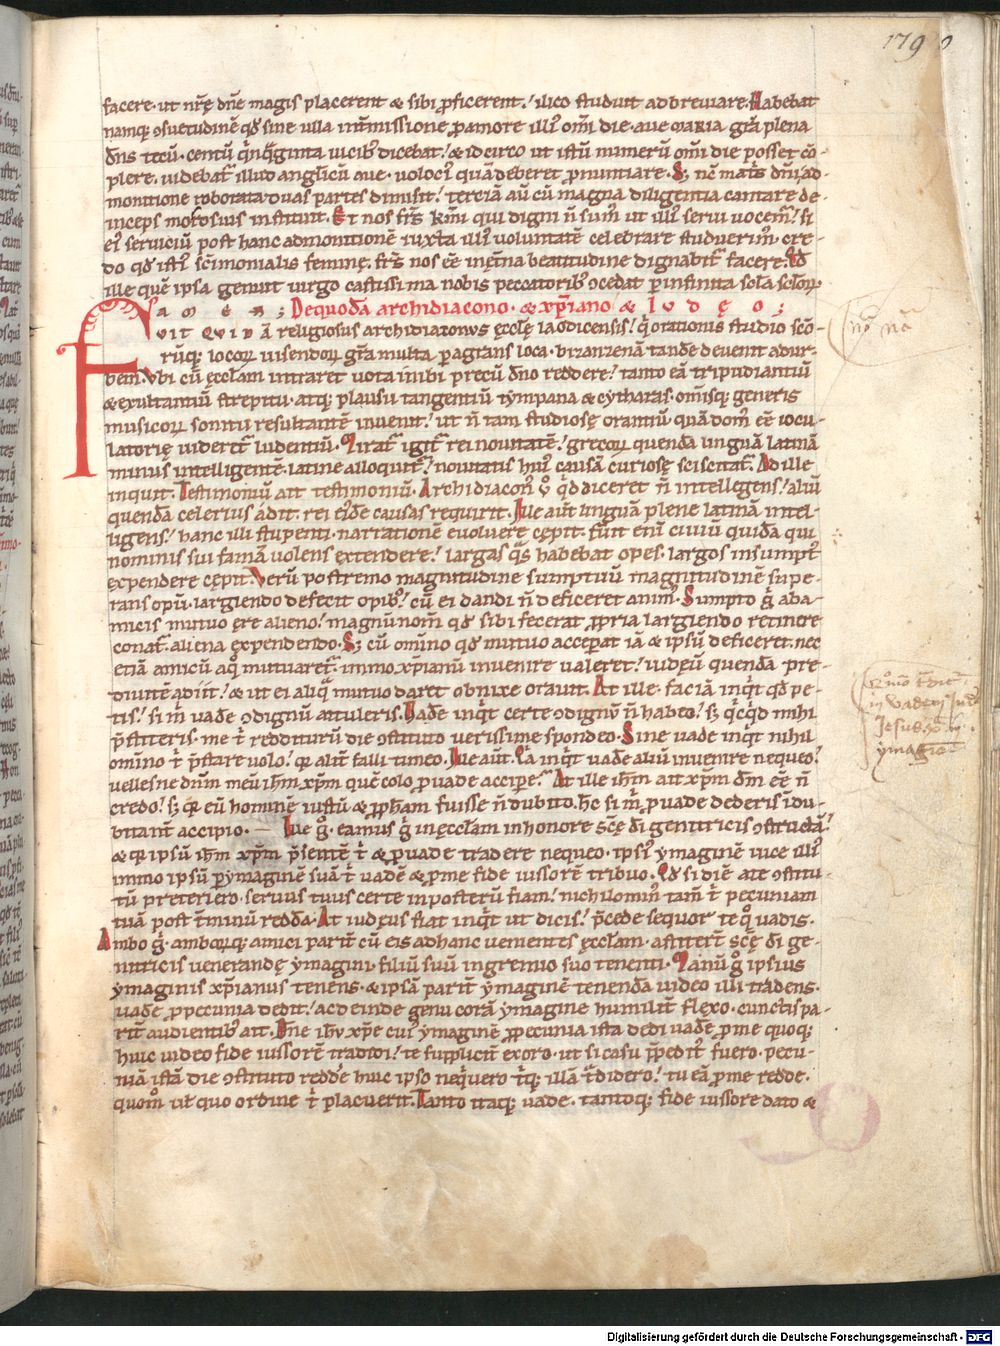 179
facere· ut nr̄ę dn̄e magis placerent & sibi ꝓficerent·' ilico studuit adbreviare. Habebat
namq; ꝯsuetudinē qđ sine ulla int̄missione ꝓamore illi' om̄i die· aue maria gr̄a plena
dn̄s tecū· centū q̄nq̄ginta uicib; dicebat·' & idcirco ut istū numerū om̄i die posset cō-
plere· uidebat̄ illi uto anglicū aue· uoloci' quā deberet ꝓnuntiare· S; nē mat̄s dn̄i ad-
monitione roborata· duas partes dimisit·' terciā aū cū magna diligentia cantare de-
inceps morosius instituit· Et nos fr̄s km̄i qui digni n̄ sum' ut illi' serui uocem̄·' si
ei' seruiciū post hanc admonitionē iuxta illi' uoluntatē celebrare studuerim'· cre-
do qđ isti' sc̄imonialis feminę· fr̄s nos eē in ęt̄na beatitudine dignabit̄ facere· Qđ
ille quē ipsa genuit uirgo castissima nobis peccatorib; ꝯcedat ꝑ infinita sc̄la sc̄loꝝ·
a m e n ; De quodā archidiacono· & xp̄iano & I u d ę o ;
FVIT QVIDĀ religiosus archidiaconus ęcclę laodicensis·' q̄ orationis studio scō-
rūq; locoꝝ uisendoꝝ gr̄a multa ꝑagrans loca· bizanzenā tandē deuenit ad ur-
bem· Vbi cū ęcclam intraret uota inibi precū dn̄o reddere·' tanto eā tripudiantiū
& exultantiū strepitu· atq; plausu tangentiū tympana & cytharas· om̄isq; generis
musicoꝝ sonitu resultantē inuenit·' ut n̄ tam studiosę orantiū quā dom' eē iocu-
latorię uideret̄ ludentiū· Mirat̄ igit̄ rei nouitatē·' grecoꝝ quendā linguā latinā
minus intelligentē· latine alloquit̄·' nouitatis hui' causā curiosę sciscitat̄· Ad ille
inquit· Testimoniū ait testimoniū· Archidiacon' ů q̄d diceret n̄ intellegens·' aliū
quendā celerius adit· rei ei'dē causas requirit· Ille aut̄ linguā plene latinā intel-
ligens·' hanc illi stupenti· narrationē euoluere cępit· Fūt enī ciuiū quidā qui
nominis sui famā uolens extendere·' largas q̄s habebat opes· largos in sumpt'
expendere cępit· Verū postremo magnitudine sumptuū magnitudinē supe-
rans opū· largiendo defecit opib;·' cū ei dandi n̄ deficeret anim'· Sumpto g̊ ab a-
micis mutuo ęre alieno·' magnū nom̄ qđ sibi fecerat ꝓpria largiendo retinere
conat̄ aliena expendendo· S; cū om̄ino qđ mutuo acceperat iā & ipsū deficeret· nec
etiā amicū a q̊ mutuaret̄· immo xp̄ianū inuenire ualeret·' iudęū quendā pre-
diuitē adiit·' & ut ei aliq̄ mutuo daret obnixe orauit· At ille· faciā inq̄t qđ pe-
tis·' si m̄ uadē ꝯdignū attuleris· Vadē inq̄t certe ꝯdignū n̄ habeo·' s; q̄cq̄d mihi
p̄stiteris· me t̄ redditurū die ꝯstituto uerissime spondeo· Sine uade inq̄t nihil
om̄ino t̄ p̄stare uolo·' q̄a alit̄ falli timeo· Ille aut̄· Qa inq̄t uadē aliū inuenire nequeo·'
uellesne dn̄m meū ihm̄ xp̄m quē colo ꝓ uade accipe·' At ille ihm̄ ait xp̄m dm̄ eē n̄
credo·' s; q̄a eū hominē iustū & ꝓph̄am fuisse n̄ dubito· hc̄ si m̄ ꝓ uade dederis indu-
bitant̄ accipio·— Ille g̊· eamus g̊ in ęcclam in honore scē dī genitricis ꝯstructā·'
& q̄a ipsū ihm̄ xp̄m p̄sentē t̄ & ꝓ uade tradere nequeo· ipsi' ymaginē uice illi'
immo ipsū ꝑ ymaginē suā t̄ uadē & ꝓ me fide iussorē tribuo· Qđ si diē a te ꝯstitu-
tū preteriero· seruus tuus certe in posterū fiam·' nichilomin' tam̄ t̄ pecuniam
tuā post t̄minū reddā· At iudęus fiat inq̄t ut dicis·' p̄cede sequor te q̊ uadis·
Ambo g̊· amboꝝq; amici parit̄ cū eis ad hanc uenientes ęcclam· astiter̄t scē dī ge-
nitricis uenerandę ymagini· filiū suū in gremio suo tenenti· Manū g̊ ipsius
ymaginis xp̄ianus tenens· & ipsā parit̄ ymaginē tenendā iudeo illi tradens·
uadē ꝓ pecunia dedit·' ac deinde genu corā ymagine humilit̄ flexo· cunctis pa-
rit̄ audientib; ait· Dn̄e ihū xp̄e cui' ymaginē ꝓ pecunia ista dedi uadē· ꝓ me quoq;
huic iudeo fide iussorē tradidi·' te supplicit̄ exoro· ut si casu p̄pedit' fuero· pecu-
niā istā die ꝯstituto reddē huic ipso neq̄uero t̄q; illā t̄didero·' tu eā ꝓ me redde·
quom̊ ul̄ quo ordine t̄ placuerit· Tanto itaq; uade· tantoq; fide iussore dato &
Digitalisierung gefördert durch die Deutsche Forschungsgemeinschaft - DFG